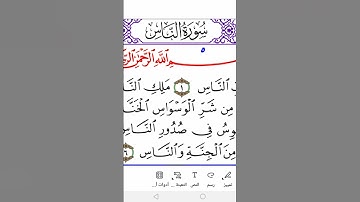 سُورَةُ النَّاسِ
ـمِ ٱللَّهِ ٱلرَّحْمَٰنِ ٱلرَّ
ٱلنَّاسِ ١ مَلِكِ ٱلنَّـ
مِن شَرِّ ٱلْوَسْوَاسِ ٱلْخَنَّا
ـوِسُ فِي صُدُورِ ٱلنَّاسِ
مِنَ ٱلْجِنَّةِ وَٱلنَّاسِ ٦
تمييز رسم النص التعبئة و... أدوات أ...